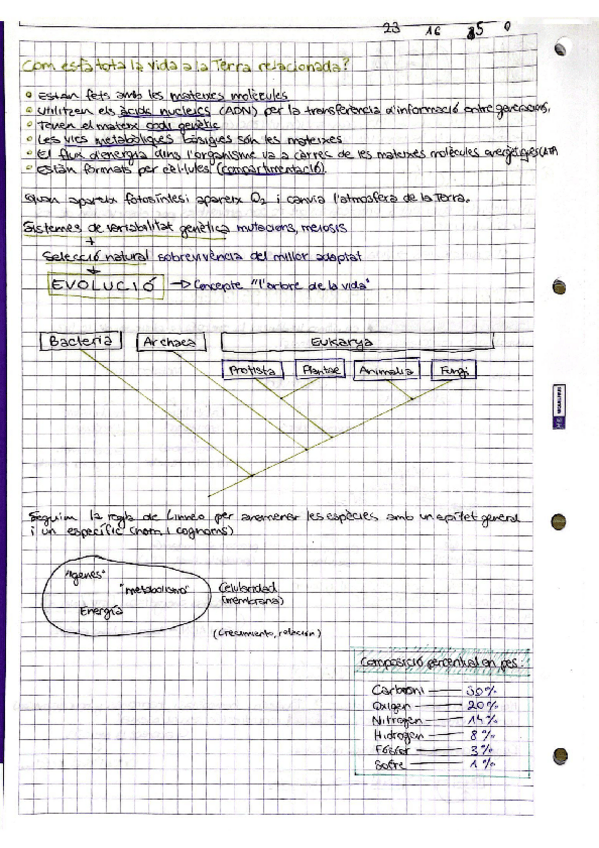 23 16 85 0
Com està tota la vida a la Terra relacionada?
• Estan fets amb les mateixes molècules
• Utilitzen els àcids nucleics (ADN) per la transferència d'informació entre generacions.
• Tenen el mateix codi genètic
• Les vies metabòliques bàsiques són les mateixes
• El flux d'energia dins l'organisme va a càrrec de les mateixes molècules
• Estàn formats per cèl·lules (compartimentació).
Quan apareix fotosíntesi apareix O2 i canvia l'atmosfera de la Terra.
Sistemes de variabilitat genètica mutacions, meiosis
+
Selecció natural sobrevivència del millor adaptat
EVOLUCIÓ → Concepte "l'arbre de la vida"
Bacteria Archaea Eukarya
Protista Plantae Animalia Fungi
Seguim la regla de Linneo per anomenar les espècies amb un epítet general
i un específic (nom i cognoms)
"genes"
"metabolismo" Celularidad
(membrana)
Energía
(Crecimiento, relación)
Composició percentual en pes:
Carboni — 50%
Oxigen — 20%
Nitrogen — 14%
Hidrogen — 8%
Fósfor — 3%
Sofre — 1%